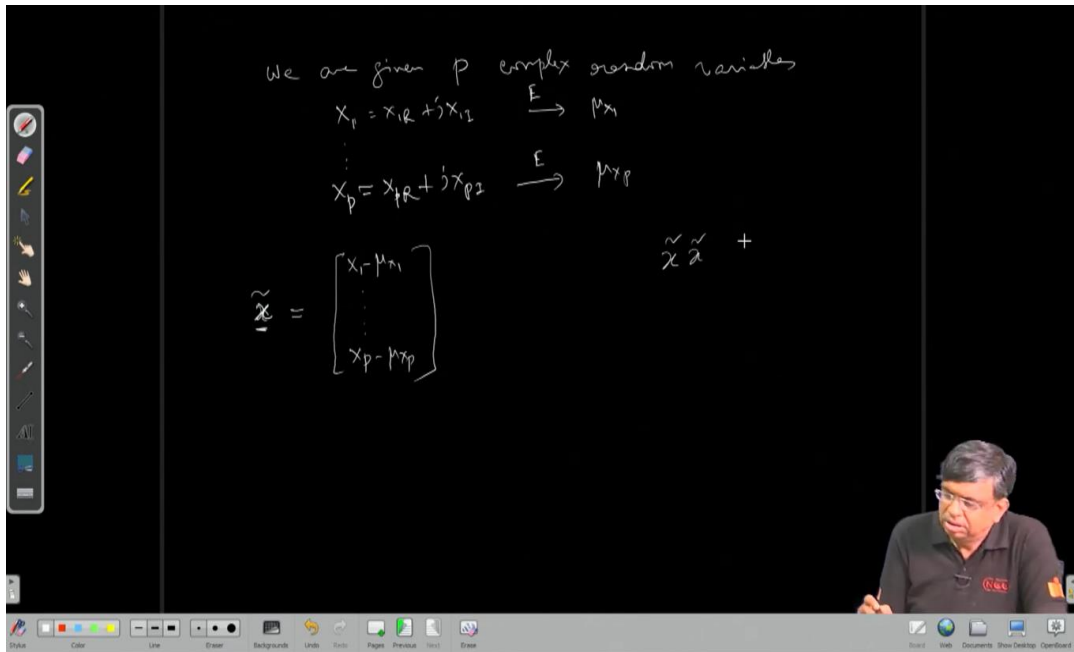 We are given p complex random variables
X₁ = X₁R + jX₁I  E→  μx₁
⋮
Xp = XpR + jXpI  E→  μxp
x̃ = [ x₁ - μx₁
⋮
xp - μxp ]
x̃ x̃ +
Stylus
Color
Line
Eraser
Backgrounds
Undo
Redo
Pages
Previous
Next
Erase
Board
Web
Documents
Show Desktop
OpenBoard